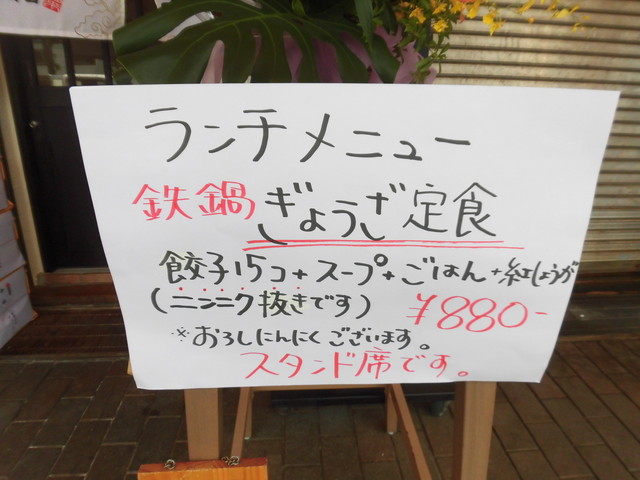 ランチメニュー
鉄鍋ぎょうざ定食
餃子15コ+スープ+ごはん+紅しょうが
(ニンニク抜きです) ¥880-
※おろしにんにくございます。
スタンド席です。